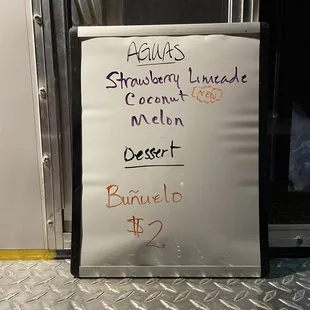 AGUAS
Strawberry Limeade
Coconut NEW
Melon
Dessert
Buñuelo
$2